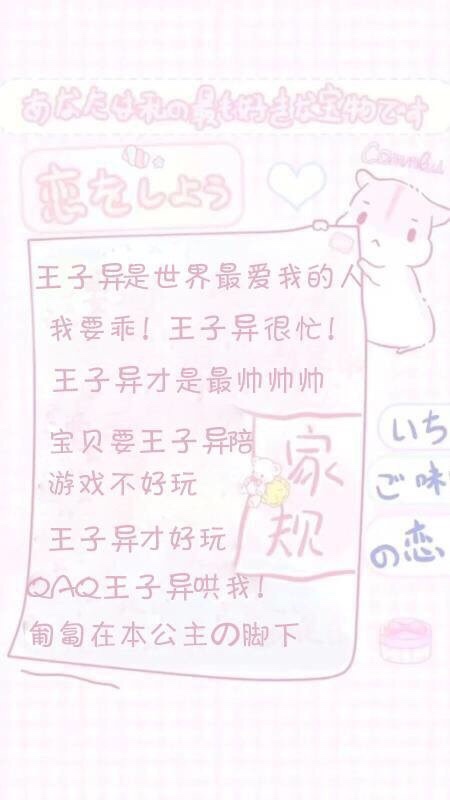 あなたは私の最も好きな宝物です
恋をしよう
王子异是世界最爱我的人
我要乖！王子异很忙！
王子异才是最帅帅帅
宝贝要王子异陪
游戏不好玩
王子异才好玩
QAQ王子异哄我！
匍匐在本公主の脚下
家
规
いち
ご味
の恋